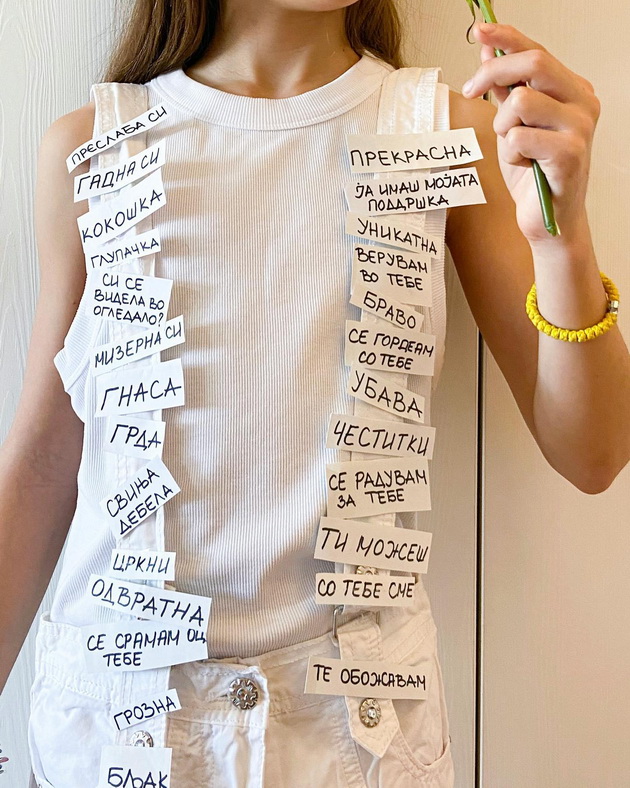 ПРЕСЛАБА СИ
ГАДНА СИ
КОКОШКА
ГЛУПАЧКА
СИ СЕ
ВИДЕЛА ВО
ОГЛЕДАЛО?
МИЗЕРНА СИ
ГНАСА
ГРДА
СВИЊА
ДЕБЕЛА
ЦРКНИ
ОДВРАТНА
СЕ СРАМАМ ОД
ТЕБЕ
ГРОЗНА
БЉАК
ПРЕКРАСНА
ЈА ИМАШ МОЈАТА
ПОДДРШКА
УНИКАТНА
ВЕРУВАМ
ВО ТЕБЕ
БРАВО
СЕ ГОРДЕАМ
СО ТЕБЕ
УБАВА
ЧЕСТИТКИ
СЕ РАДУВАМ
ЗА ТЕБЕ
ТИ МОЖЕШ
СО ТЕБЕ СМЕ
ТЕ ОБОЖАВАМ